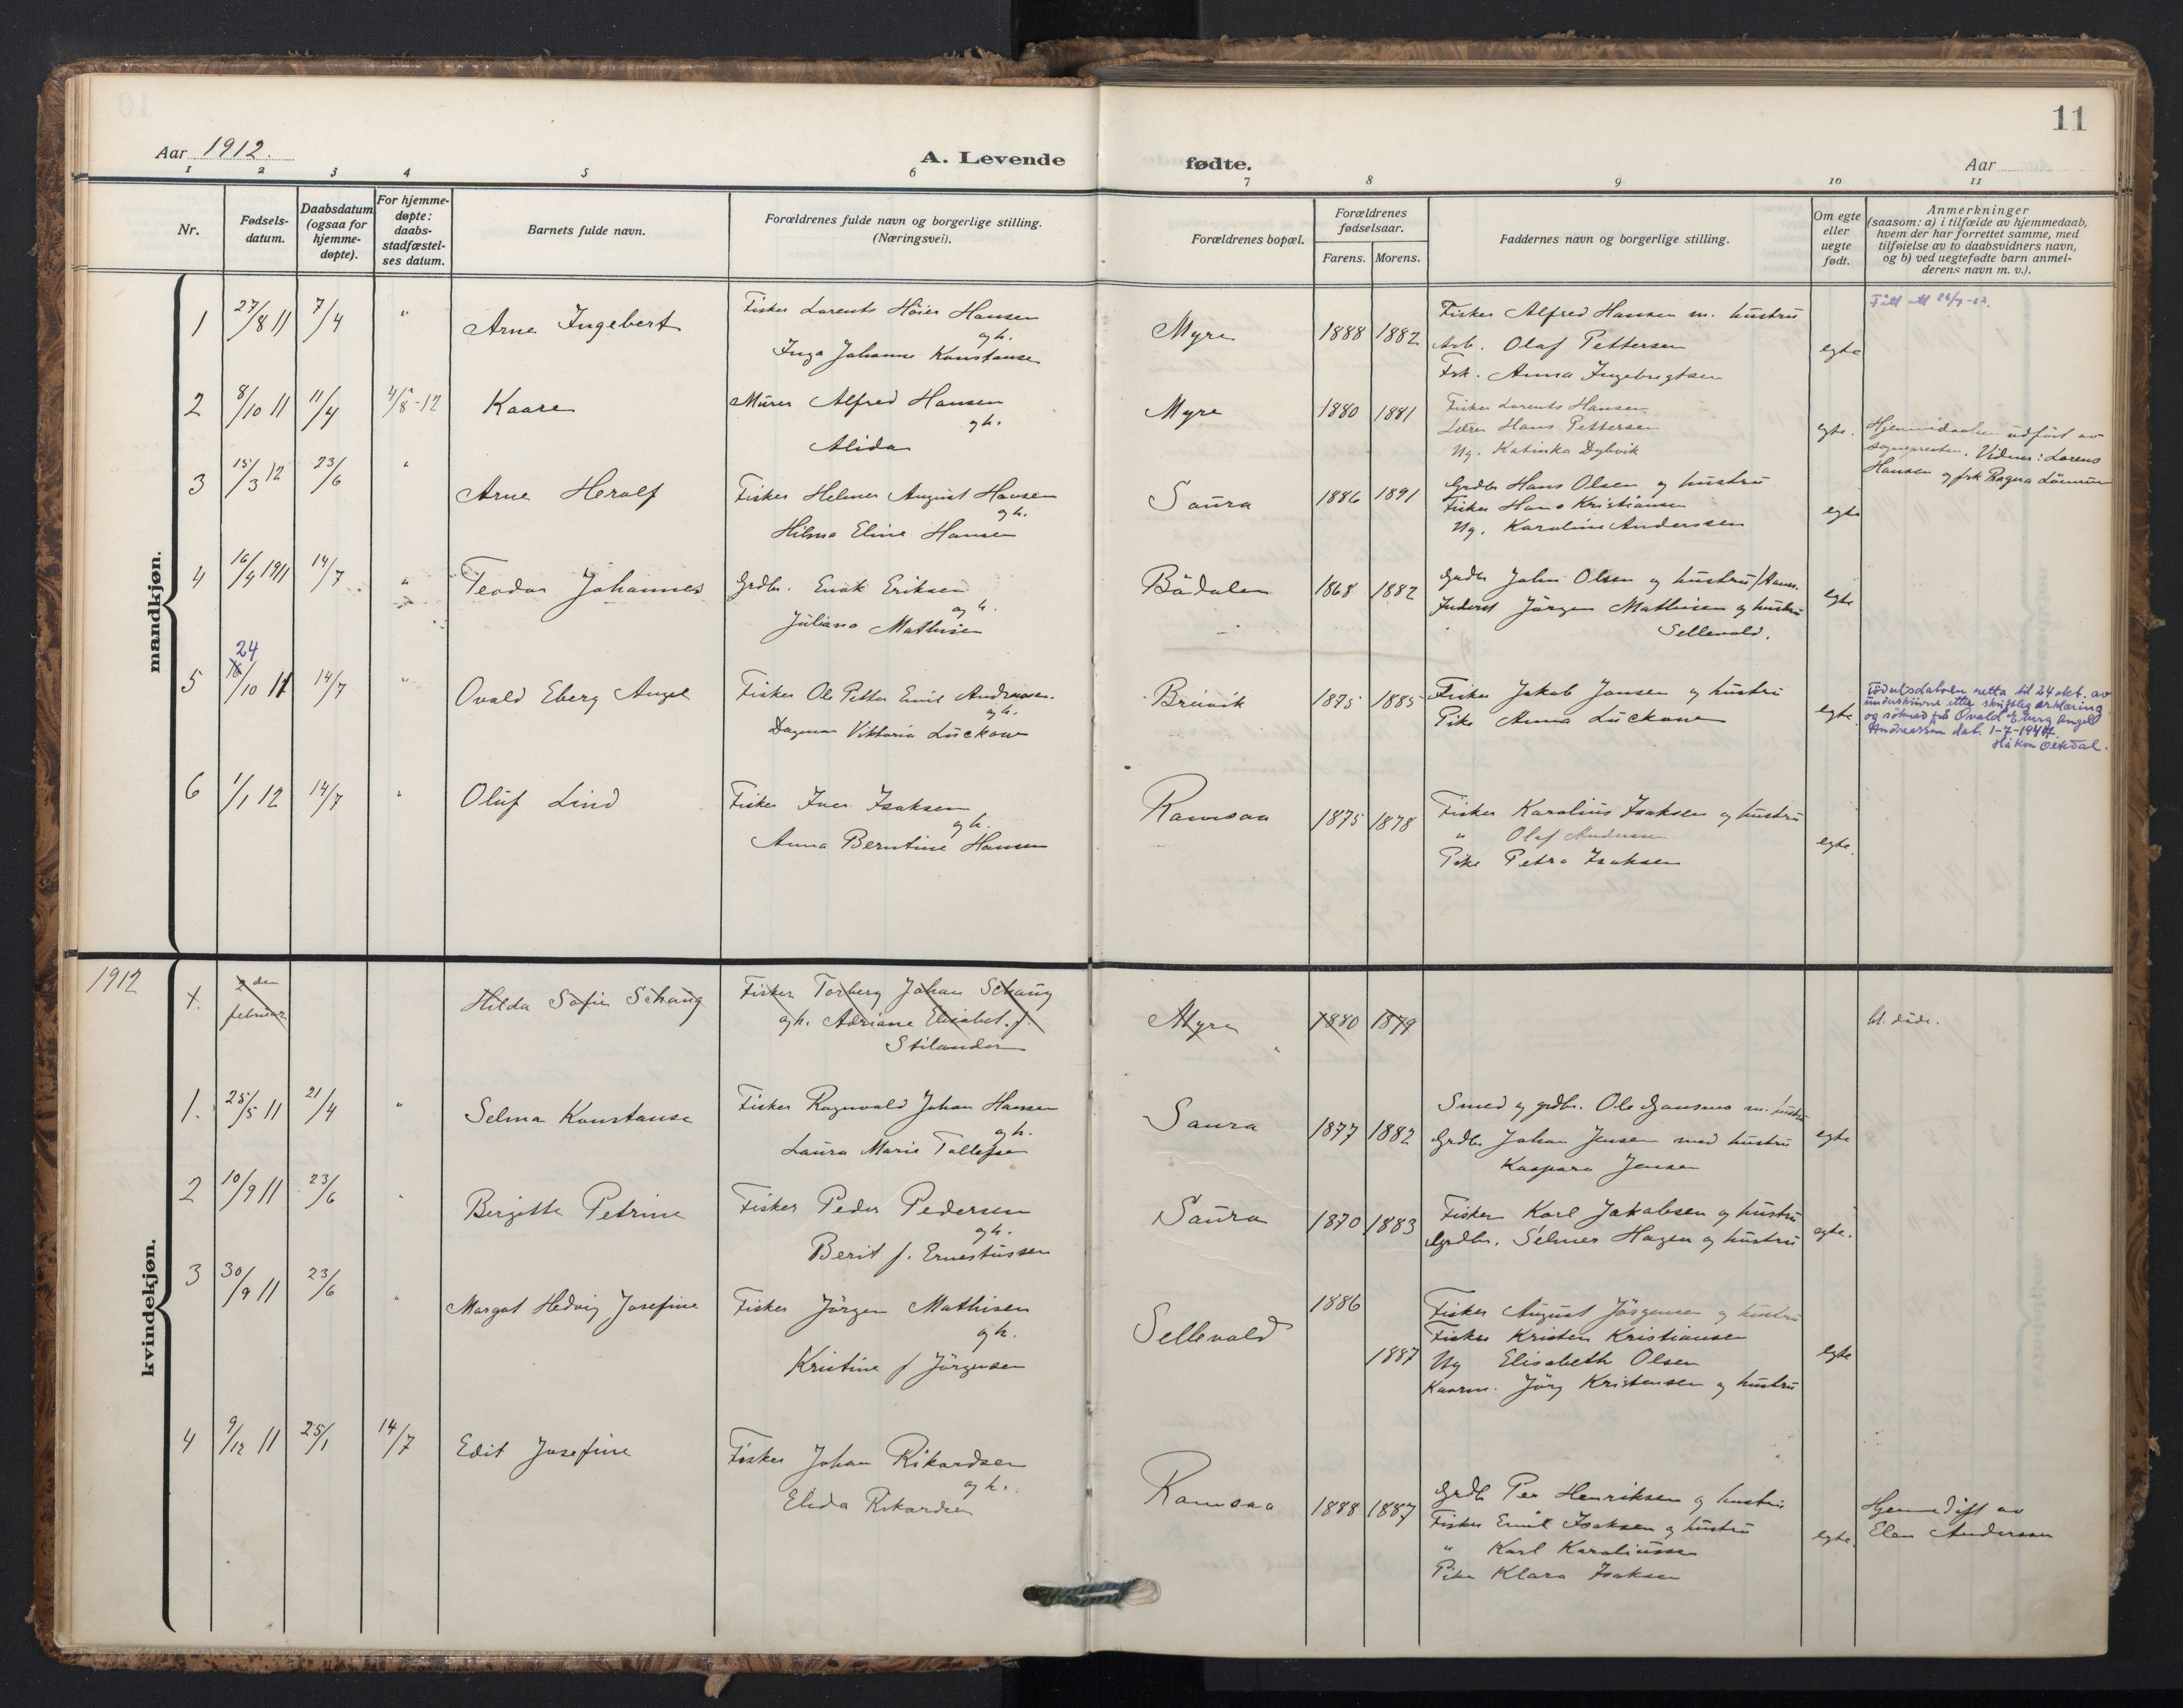 11
Aar 1912.
A. Levende fødte.
Aar
1 2 3 4 5 6 7 8 9 10 11
Nr.
Fødsels-
datum.
Daabsdatum
(ogsaa for
hjemme-
døpte).
For hjemme-
døpte:
daabs-
stadfæstel-
ses datum.
Barnets fulde navn.
Forældrenes fulde navn og borgerlige stilling.
(Næringsvei).
Forældrenes bopæl.
Forældrenes
fødselsaar.
Farens. Morens.
Faddernes navn og borgerlige stilling.
Om egte
eller
uegte
født.
Anmerkninger
(saasom: a) i tilfælde av hjemmedaab,
hvem der har forrettet samme, med
tilføielse av to daabsvidners navn,
og b) ved uegtefødte barn anmel-
derens navn m. v.).
mandkjøn.
1 27/8 11 7/4 " Arne Ingebert
Fisker Lorents Höier Hansen
og h.
Inga Johanne Konstanse
Myre 1888 1882
Fisker Alfred Hansen m. hustru
Arb. Olaf Pettersen
Frk. Anna Ingebrigtsen
egte
Fått att
2 8/10 11 11/4 4/8-12 Kaare
Murer Alfred Hansen
og h.
Alida
Myre 1880 1881
Fisker Lorents Hansen
Hans Pettersen
Ug. Katinka Dybvik
egte.
Hjemmedaaben udfört av
sognepresten. Vidner: Lorens
Hansen og frk Ragna
3 15/3 12 23/6 " Arne Herolf
Fisker Helmer August Hansen
og h.
Hilma Eline Hansen
Saura 1886 1891
Grdbr Hans Olsen og hustru
Fisker Hans Kristiansen
Ug. Karoline Anderssen
egte
4 16/4 1911 14/7 " Teodor Johannes
Grdbr. Enok Eriksen
og h.
Juliana Mathisen
Bödalen 1868 1882
Grdbr John Olsen og hustru
Inderst Jörgen Mathisen og hustru
Sellevold.
egte
5 24 16/10 11 14/7 " Ovald Eberg Angel
Fisker Ole Petter Emil Andreasen.
og h.
Dagmar Viktoria Lückow
Bruvik 1875 1885
Fisker Jakob Jansen og hustru
Pike Anna Lückow
egte.
Födselsdatoen retta til 24 okt. av
underskrivne etter skriftleg erklæring
og söknad frå Ovald Eberg Angel
Andreassen dat. 1-7-1947.
Håkon
6 1/1 12 14/7 " Oluf Lind
Fisker Iver Isaksen
og h.
Anna Berntine Hansen
Ramsaa 1875 1878
Fisker Karolius Isaksen og hustru
" Olaf Anderssen
Pike Petra Isaksen
egte.
1912
kvindekjøn.
1. 2den
februar
Hilda Sofie Schaug
Fisker Torberg Johan Schaug
og h. Adriane Elisabet. f.
Stilander
Myre 1880 1879
bl. döde.
1. 25/5 11 21/4 " Selma Konstanse
Fisker Ragnvald Johan Hansen
og h.
Laura Marie Tollefsen
Saura 1877 1882
Smed og grdbr. Ole m. hustru
Grdbr Johan Jensen med hustru
Kaspara Jensen
egte
2 10/9 11 23/6 " Birgitte Petrine
Fisker Peder Pedersen
og h.
Berit f. Ernestussen
Saura 1870 1883
Fisker Karl Jakobsen og hustru
Grdbr. Selmer Hagen og hustru
egte.
3 30/9 11 23/6 " Margot Hedvig Josefine
Fisker Jörgen Mathisen
og h.
Kristine f Jörgensen
Sellevold 1886 1887
Fisker August Jörgensen og hustru
Fisker Kristen Kristiansen
Ug Elisabeth Olsen
Kaarm. Jörg Kristensen og hustru
egte
4 9/12 11 25/1 14/7 Edit Josefine
Fisker Johan Rikardsen
og h.
Elida Rikardsen
Ramsaa 1888 1887
Grdb Per Henriksen og hustru
Fisker Emil Isaksen og hustru
" Karl Karoliussen
Pike Klara Isaksen
egte.
Hjemmedöpt av
Elen Anderssen